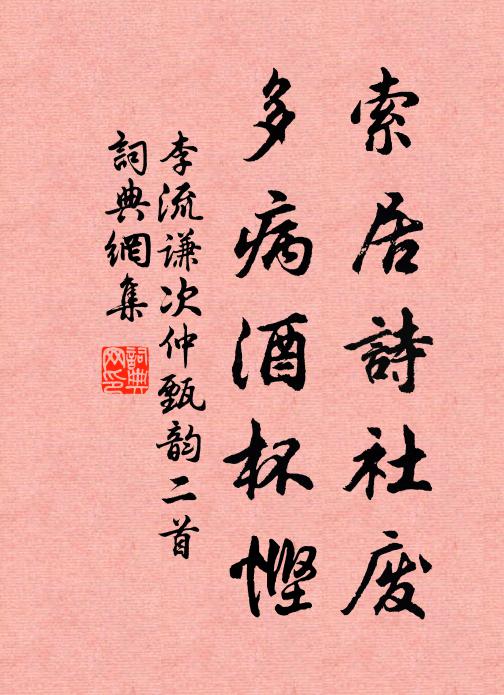 索居詩社废
多病酒杯慳
李流谦次仲甄韵二首
詞典網集
詞典網印